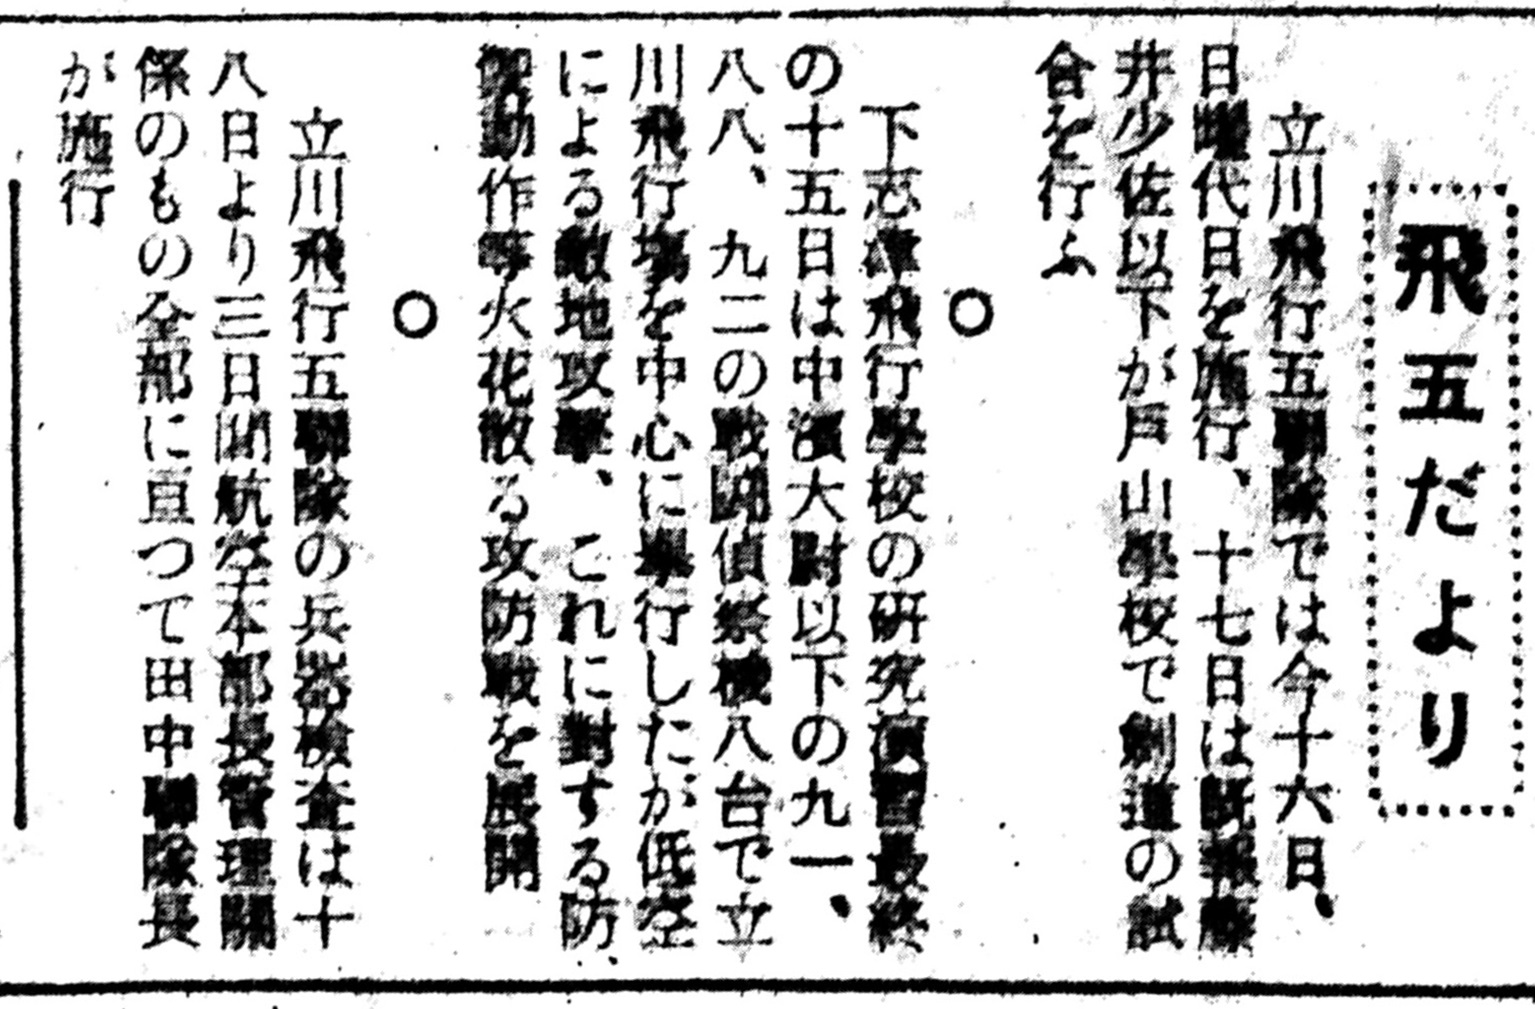 飛五だより
立川飛行五聯隊では今十六日、
日曜代日を施行、十七日は既報藤
井少佐以下が戸山學校で劍道の試
合を行ふ
○
下志津飛行學校の研究演習最終
の十五日は中濱大尉以下の九一、
八八、九二の戰鬪偵察機八台で立
川飛行場を中心に擧行したが低空
による敵地攻擊、これに對する防
禦動作等火花散る攻防戰を展開
○
立川飛行五聯隊の兵器檢査は十
八日より三日間航空本部長管理關
係のもの全部に亘つて田中聯隊長
が施行